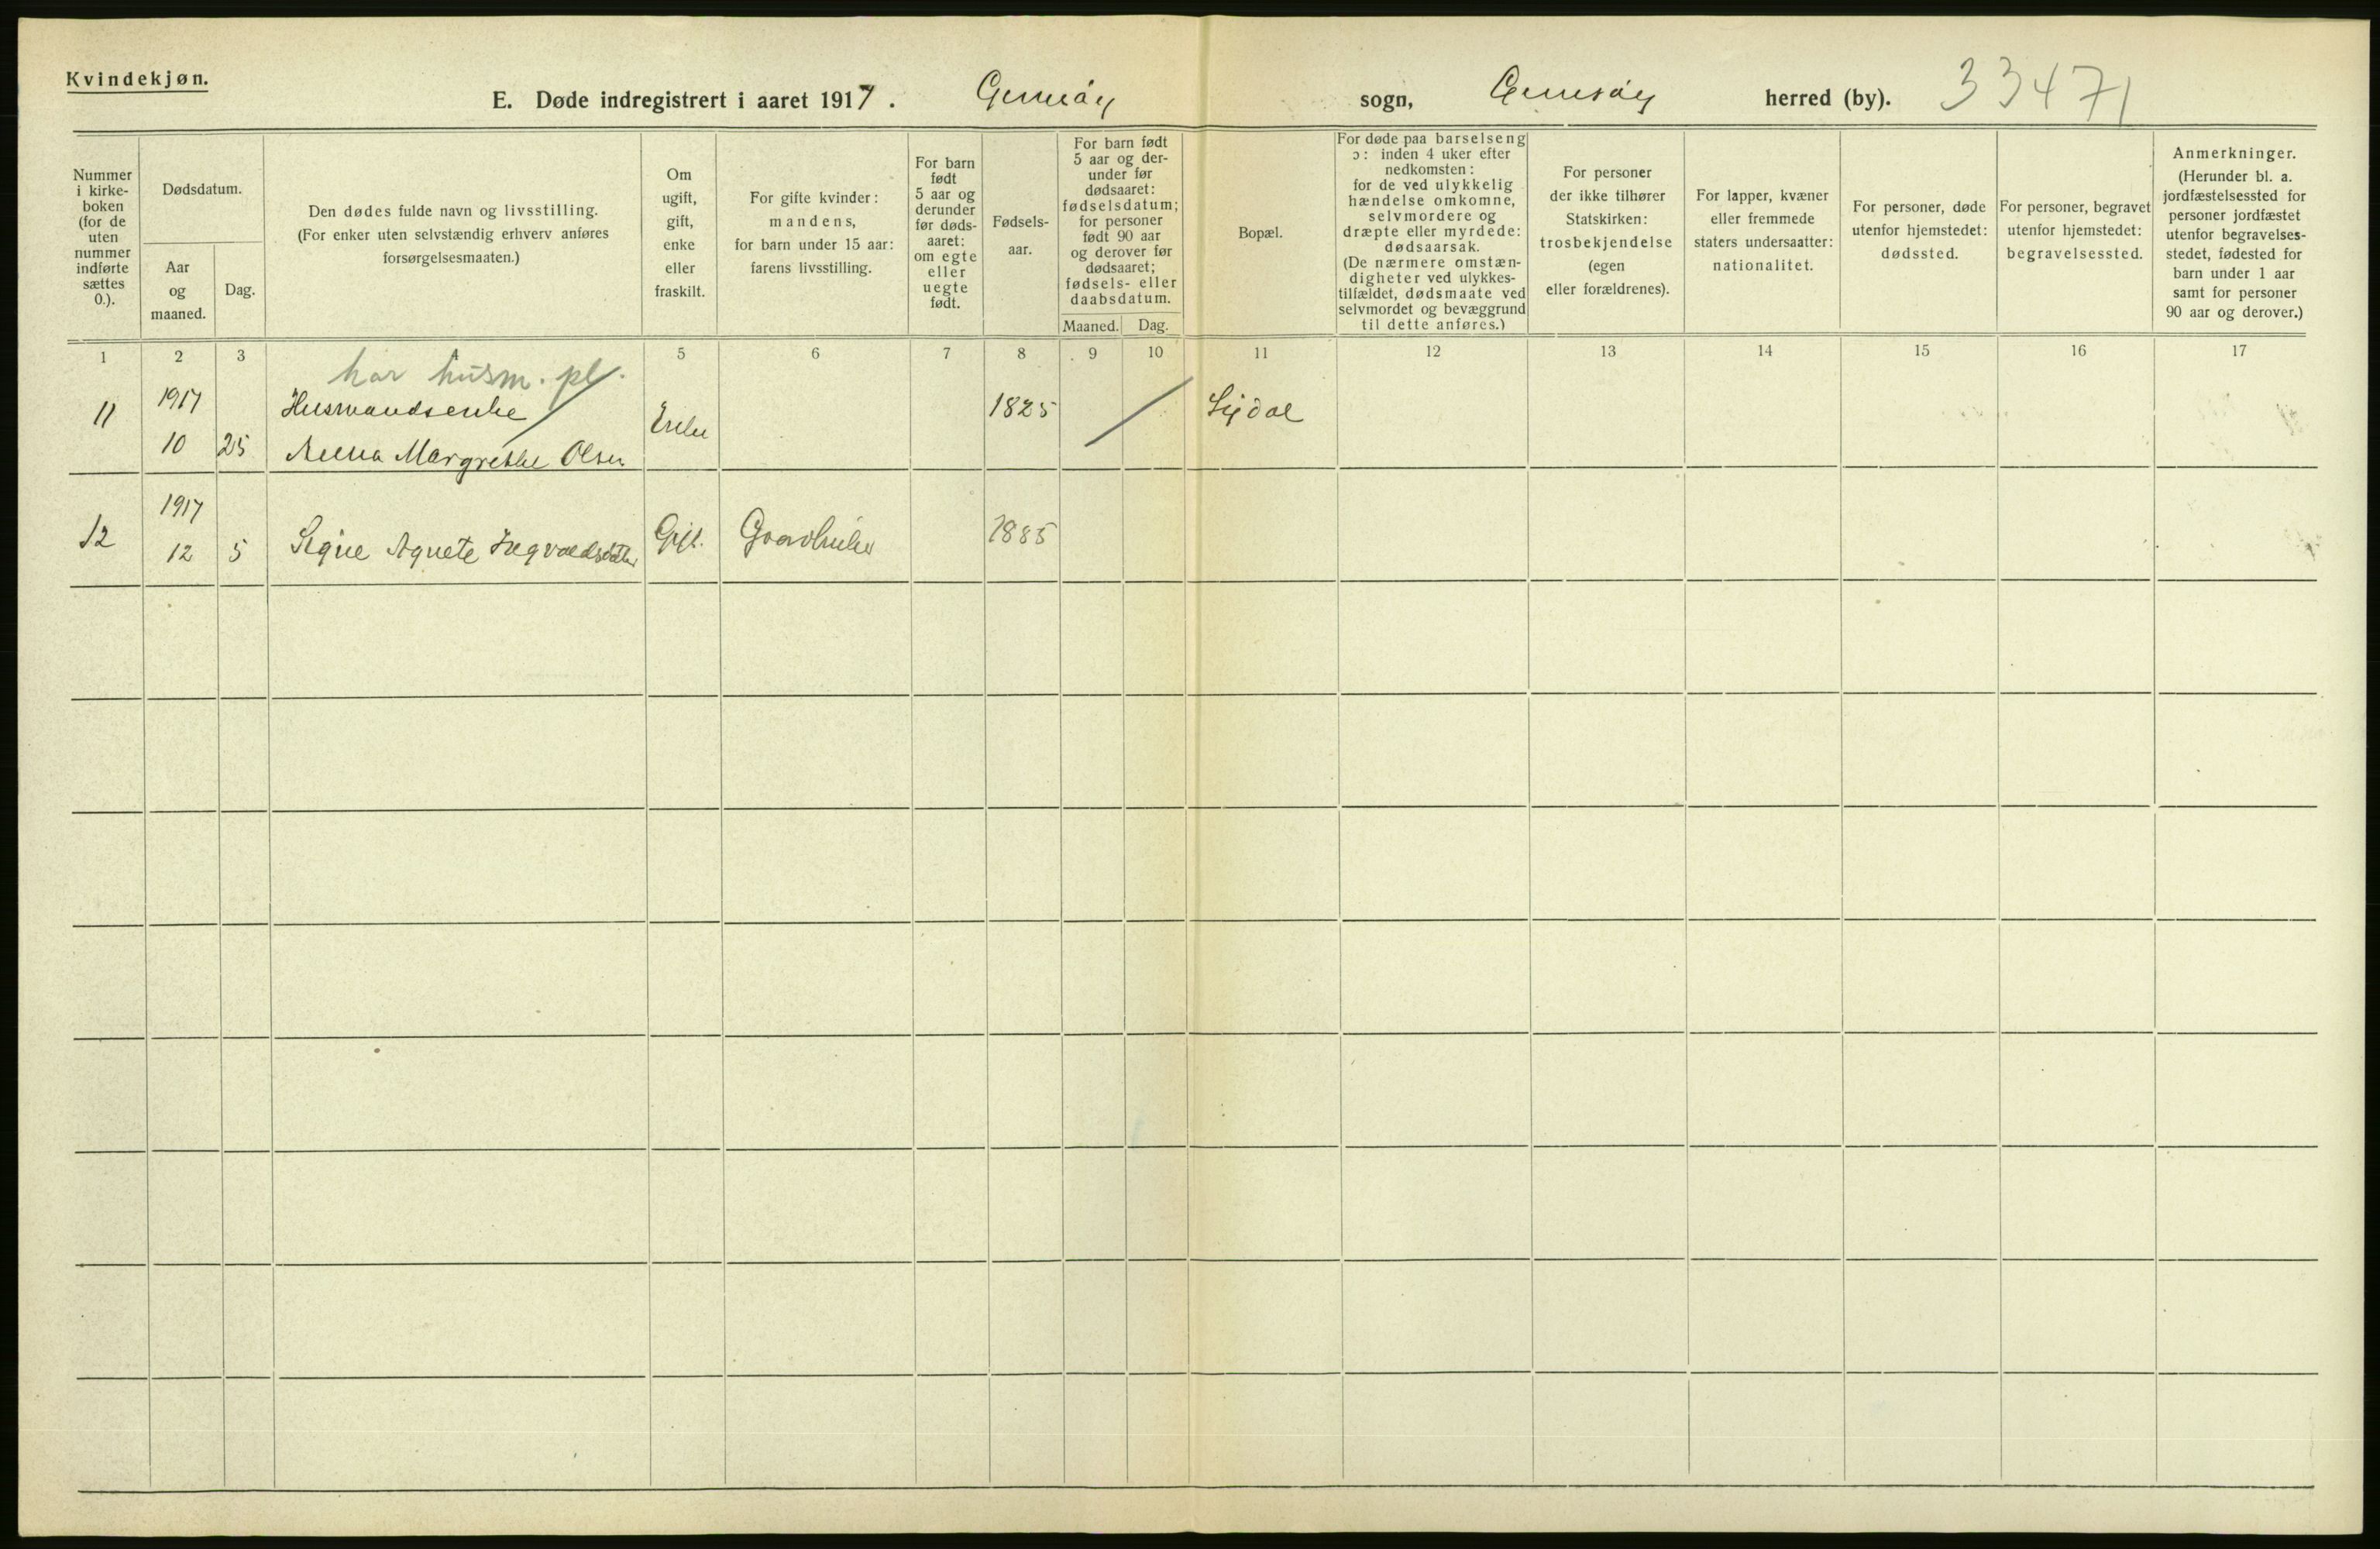 Kvindekjøn.
E. Døde indregistrert i aaret 1917. Gimsøy sogn, Gimsøy herred (by). 33471
Nummer
i kirke-
boken
(for de
uten
nummer
indførte
sættes
0.).
Dødsdatum.
Aar
og
maaned.
Dag.
Den dødes fulde navn og livsstilling.
(For enker uten selvstændig erhverv anføres
forsørgelsesmaaten.)
Om
ugift,
gift,
enke
eller
fraskilt.
For gifte kvinder:
mandens,
for barn under 15 aar:
farens livsstilling.
For barn
født
5 aar og
derunder
før døds-
aaret:
om egte
eller
uegte
født.
Fødsels-
aar.
For barn født
5 aar og der-
under før
dødsaaret:
fødselsdatum;
for personer
født 90 aar
og derover før
dødsaaret;
fødsels- eller
daabsdatum.
Maaned. Dag.
Bopæl.
For døde paa barselseng
ɔ: inden 4 uker efter
nedkomsten:
for de ved ulykkelig
hændelse omkomne,
selvmordere og
dræpte eller myrdede:
dødsaarsak.
(De nærmere omstæn-
digheter ved ulykkes-
tilfældet, dødsmaate ved
selvmordet og bevæggrund
til dette anføres.)
For personer
der ikke tilhører
Statskirken:
trosbekjendelse
(egen
eller forældrenes).
For lapper, kvæner
eller fremmede
staters undersaatter:
nationalitet.
For personer, døde
utenfor hjemstedet:
dødssted.
For personer, begravet
utenfor hjemstedet:
begravelsessted.
Anmerkninger.
(Herunder bl. a.
jordfæstelsessted for
personer jordfæstet
utenfor begravelses-
stedet, fødested for
barn under 1 aar
samt for personer
90 aar og derover.)
1 2 3 5 6 7 8 9 10 11 12 13 14 15 16 17
har husm. pl.
11 1917 Husmandsenke Enke 1825 Sydal
10 25 Anna Margrethe Olsen
1917
12 12 5 Signe Agnete Ingvaldsdatter Gift. Gaardbruker 1885